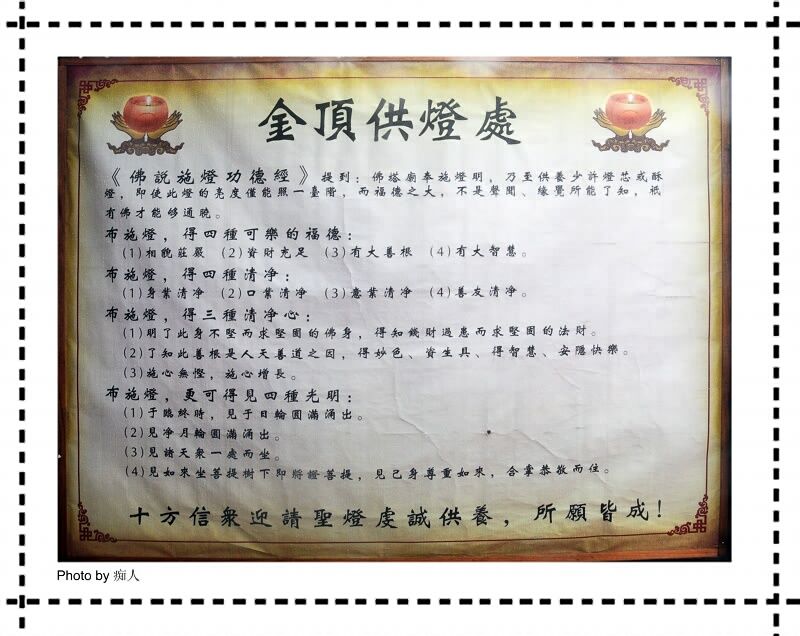 金頂供燈處
《佛説施燈功德經》提到：佛塔廟奉施燈明，乃至供養少許燈芯或酥
燈，即使此燈的亮度僅能照一臺階，而福德之大，不是聲聞、緣覺所能了知，祇
有佛才能够通曉。
布施燈，得四種可樂的福德：
(1)相貌莊嚴 (2)資財充足 (3)有大善根 (4)有大智慧。
布施燈，得四種清净：
(1)身業清净 (2)口業清净 (3)意業清净 (4)善友清净。
布施燈，得三種清净心：
(1)明了此身不堅而求堅固的佛身，得知錢財過患而求堅固的法財。
(2)了知此善根是人天善道之因，得妙色、資生具、得智慧、安隱快樂。
(3)施心無慳，施心增長。
布施燈，更可得見四種光明：
(1)于臨終時，見于日輪圓滿涌出。
(2)見净月輪圓滿涌出。
(3)見諸天衆一處而坐。
(4)見如來坐菩提樹下即將證菩提，見己身尊重如來，合掌恭敬而住。
十方信衆迎請聖燈虔誠供養，所願皆成！
Photo by 痴人